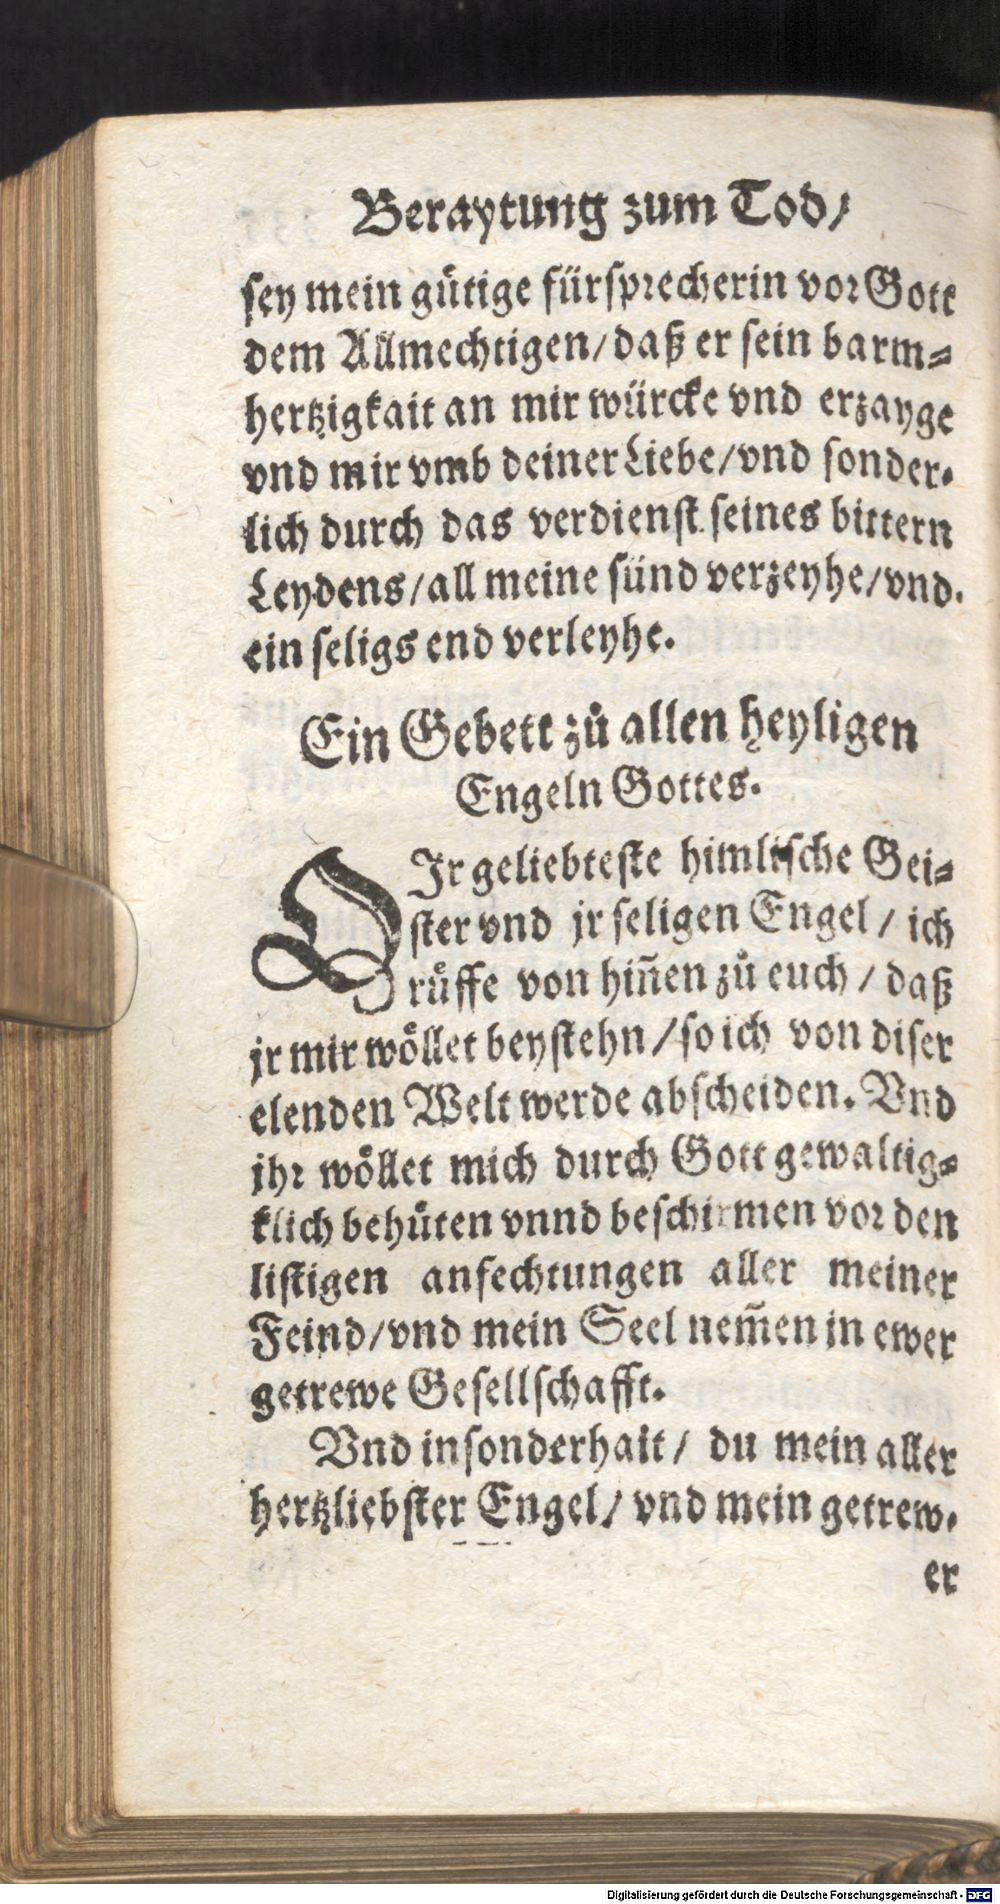 Beraytung zum Tod/
sey mein gütige fürsprecherin vor Gott
dem Allmechtigen/ daß er sein barm-
hertzigkait an mir würcke vnd erzayge
vnd mir vmb deiner Liebe/ vnd sonder-
lich durch das verdienst seines bittern
Leydens/ all meine sünd verzeyhe/ vnd
ein seligs end verleyhe.
Ein Gebett zů allen heyligen
Engeln Gottes.
OIr geliebteste himlische Gei-
ster vnd jr seligen Engel/ ich
růffe von hiñen zů euch/ daß
jr mir wöllet beystehn/ so ich von diser
elenden Welt werde abscheiden. Vnd
jhr wöllet mich durch Gott gewaltig-
klich behüten vnnd beschirmen vor den
listigen anfechtungen aller meiner
Feind/ vnd mein Seel nem̃en in ewer
getrewe Gesellschafft.
Vnd insonderhait/ du mein aller
hertzliebster Engel/ vnd mein getrew-
er
Digitalisierung gefördert durch die Deutsche Forschungsgemeinschaft - DFG